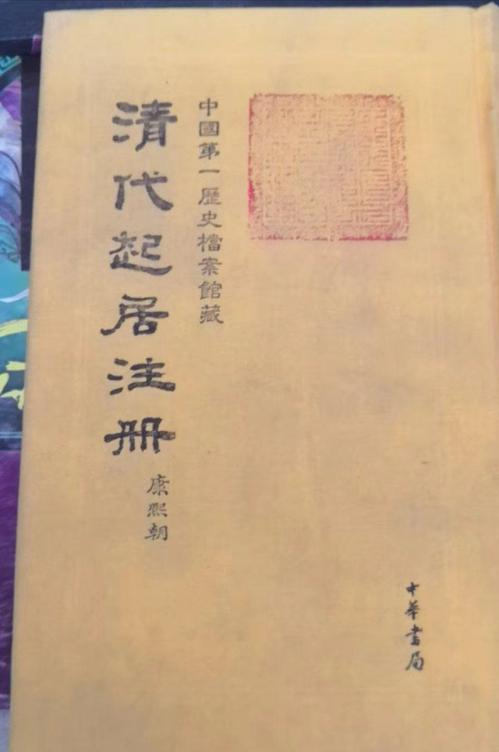 中國第一歷史檔案館藏
清代起居注册
康熙朝
中華書局